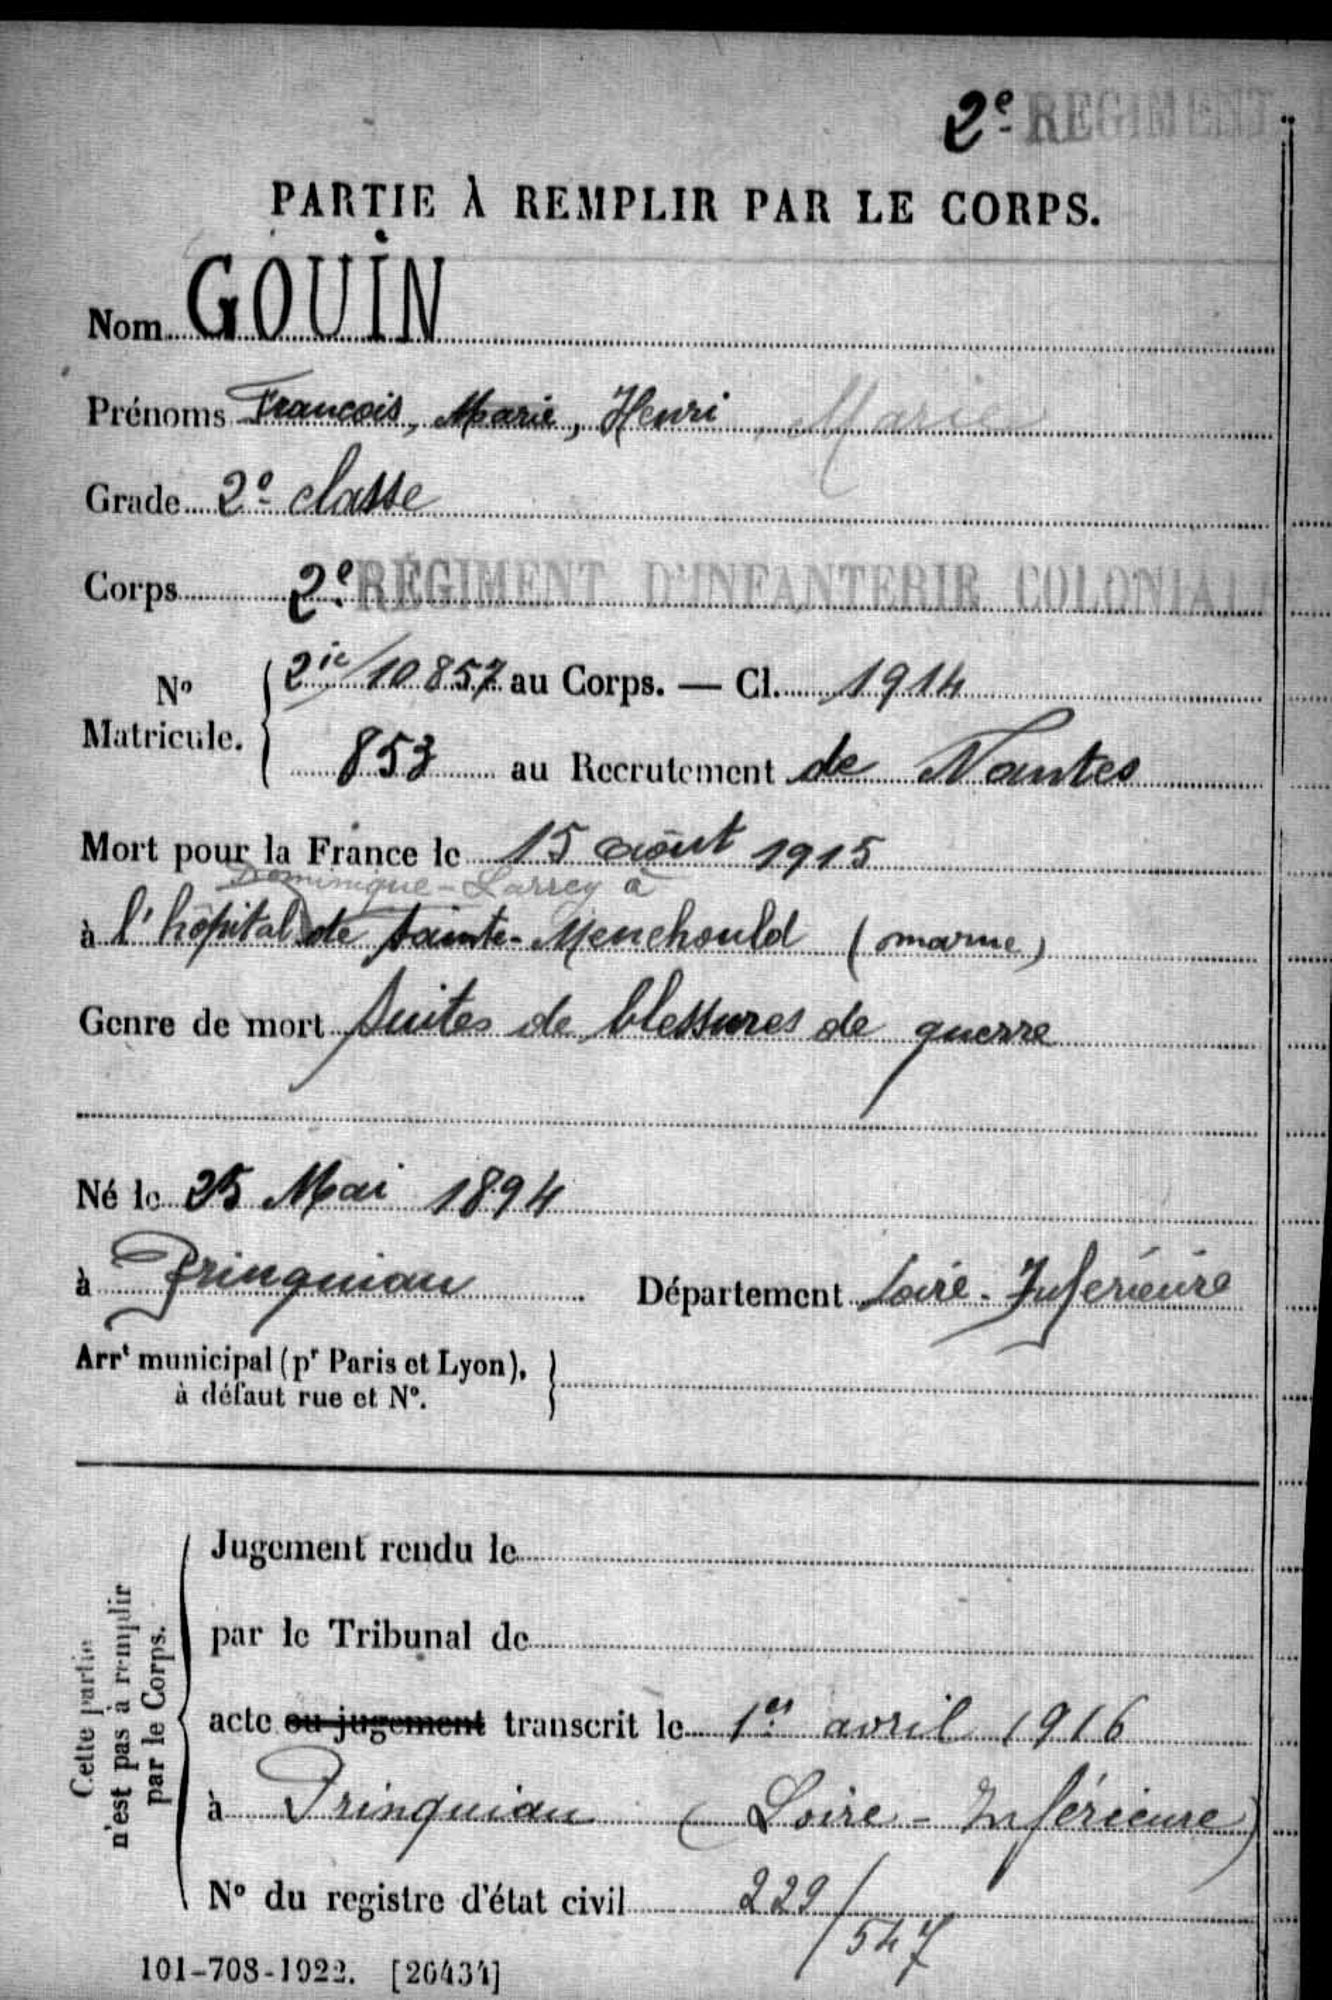 2e REGIMENT
PARTIE À REMPLIR PAR LE CORPS.
Nom GOUIN
Prénoms François, Marie, Henri, Marie
Grade 2e classe
Corps 2e RÉGIMENT D'INFANTERIE COLONIALE
No Matricule. 2ic/10857 au Corps. — Cl. 1914
853 au Recrutement de Nantes
Mort pour la France le 15 août 1915
Dominique-Larrey à
à l'hôpital de Sainte-Menehould (marne)
Genre de mort suites de blessures de guerre
Né le 25 Mai 1894
à Prinquiau Département Loire-Inferieure
Arrt municipal (pr Paris et Lyon),
à défaut rue et No.
Cette partie
n'est pas à remplir
par le Corps.
Jugement rendu le
par le Tribunal de
acte ou jugement transcrit le 1er avril 1916
à Prinquiau (Loire-Inférieure)
No du registre d'état civil 229/547
101-708-1922. [26434]